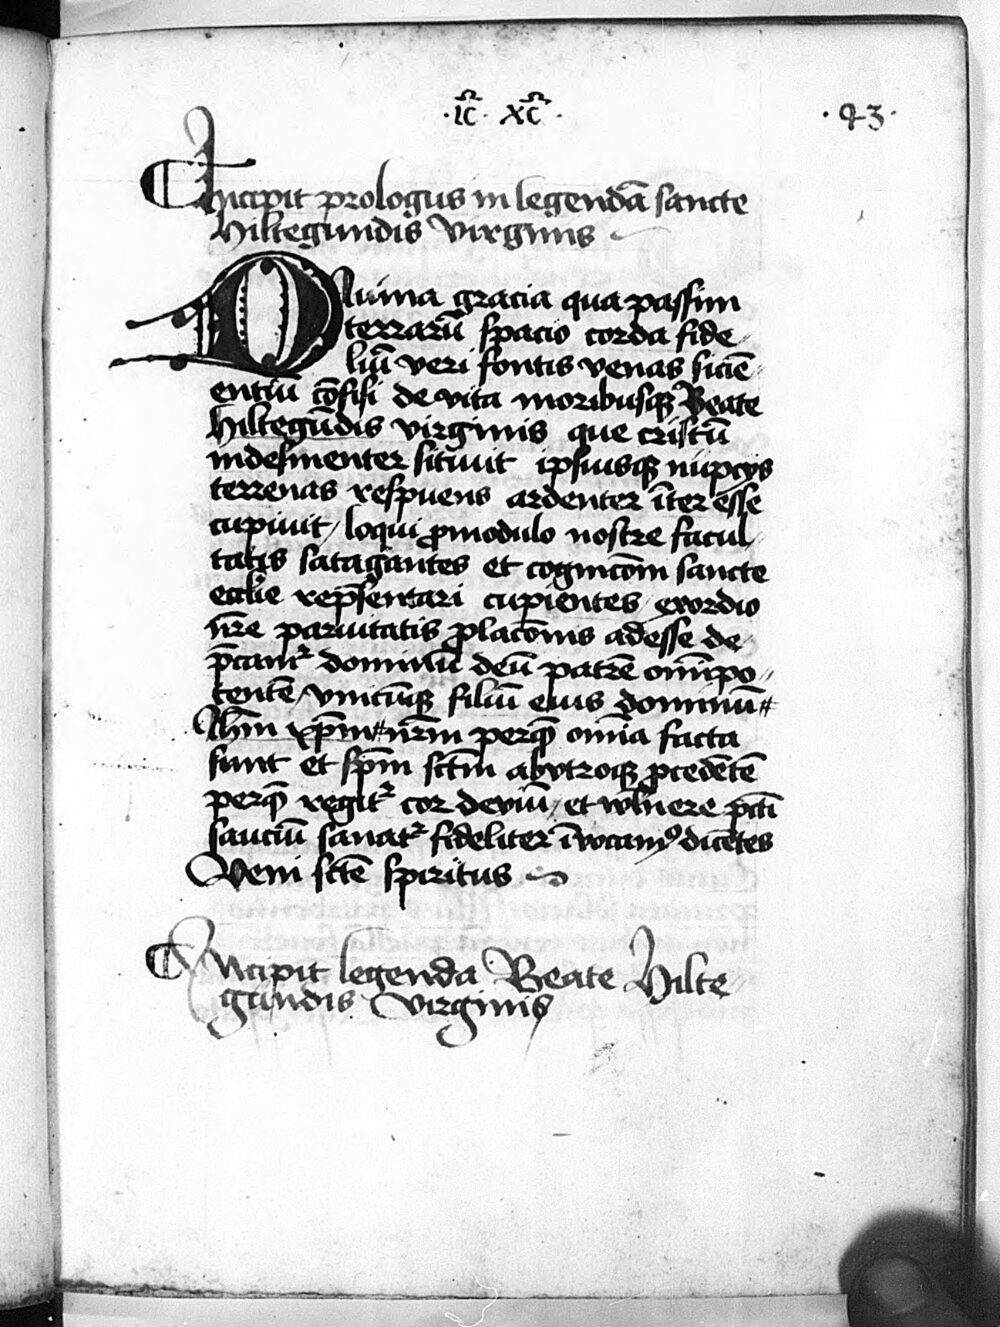 ·ic̄· xc̄·
·93·
Incipit prologus in legendā sancte
hiltegundis virginis
Diuina gracia qua passim
terrarū spacio corda fide
liū veri fontis venas sicie
entiū cōfisi de vita moribusqꝫ Beate
hiltegūdis virginis que cristū
indesinenter sitiuit ipsiusqꝫ nupcijs
terrenas respuens ardenter īter esse
cupiuit / loqui ꝓmodulo nostre facul
tatis satagantes et cognicōm sancte
ecclie rep̄sentari cupientes / exordio
nr̄e paruitatis ꝓlacōnis adesse de
p̄camꝛ dominū deū patrē om̄ipo
tentē / vnicūqꝫ filiū eius dominū
Ihm̄ xp̄m nr̄m perquē om̄ia facta
sunt et sp̄m sctm̄ abvtroqꝫ ꝓcedētē
perquē regitꝛ cor deuiū / et wlnere pcti
sauciū sanatꝛ fideliter īvocamꝰ dicētes
Veni sctē spiritus
Incipit legenda Beate Hilte
gundis virginis